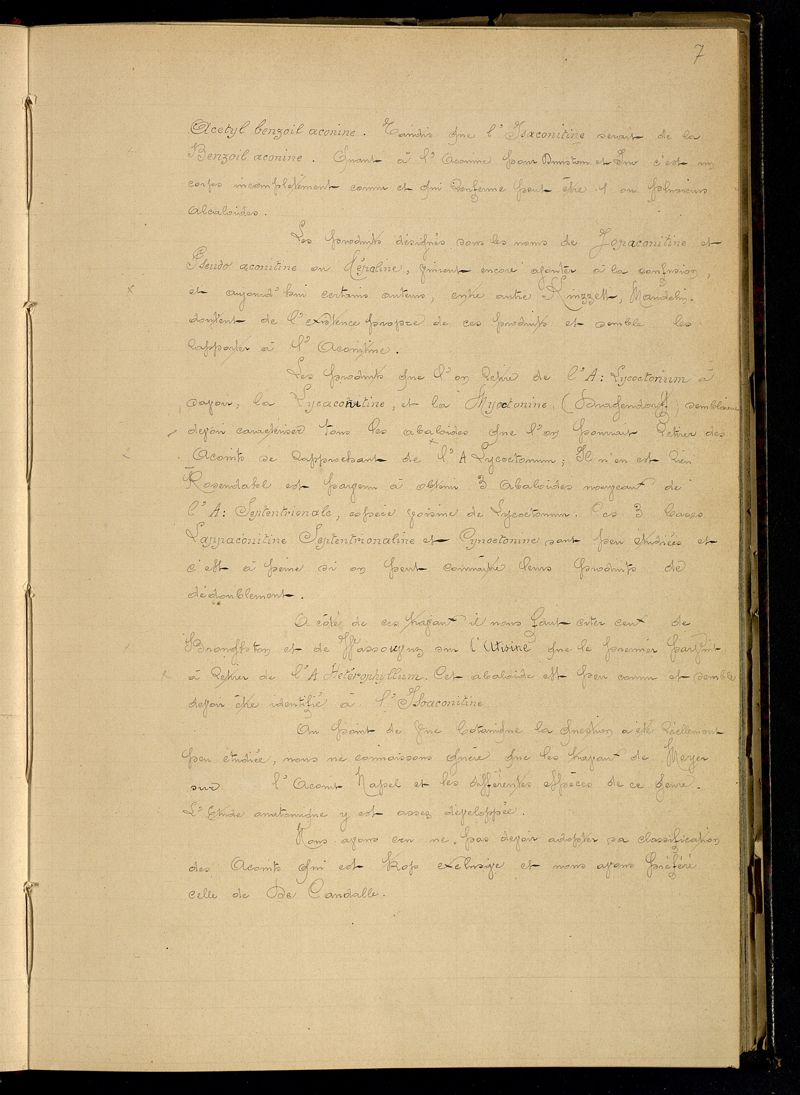 7
Acetyl benzoil aconine. Tandis que l'Isaconitine serait de la
Benzoil aconine. Quant à l'Aconine pour Dunstan et c'est un
corps incomplètement connu et qui renferme peut être 1 ou plusieurs
alcaloïdes.
Les produits désignés sous les noms de Japaconitine et
Pseudo aconitine ou Népaline, vinrent encore ajouter à la confusion,
et aujourd'hui certains auteurs, entre autre Mandelin.
doutent de l'existence propre de ces produits et semble les
rapporter à l'Aconitine.
Les produits que l'on retire de l'A: Lycoctonum à
savoir, la Lycaconitine, et la Myoctonine, (Dragendorff) semblaient
devoir caractériser tous les alcaloïdes que l'on pouvait retirer des
Aconits se rapprochant de l'A Lycoctonum; Il n'en est rien
Rosendahl est parvenu à obtenir 3 alcaloïdes nouveaux de
l'A: Septentrionale, espèce voisine de Lycoctonum. Ces 3 bases
Lappaconitine Septentrionaline et Cynoctonine sont peu étudiées et
c'est à peine si on peut connaître leurs produits de
dédoublement.
A côté de ces travaux il nous faut citer ceux de
Broughton et de Wassowjcz sur l'Atisine que le premier parvint
à retirer de l'A Heterophyllum. Cet alcaloïde est peu connu et semble
devoir être identifié à l'Isoaconitine
Au point de vue botanique la question a été réellement
peu étudiée, nous ne connaissons guère que les travaux de Meyer
sur l'Aconit Napel et les différentes espèces de ce genre.
L'Etude anatomique y est assez développée.
Nous avons cru ne pas devoir adopter sa classification
des Aconits qui est trop exclusive et nous avons préféré
celle de De Candolle.